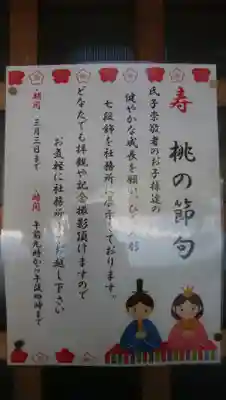 寿 桃の節句
氏子崇敬者のお子様達の
健やかな成長を願い、ひな人形
七段飾を社務所に展示しております。
どなたでも拝観や記念撮影頂けますので
お気軽に社務所にお越し下さい
・期間 三月三日まで
・時間 午前九時から午後四時まで